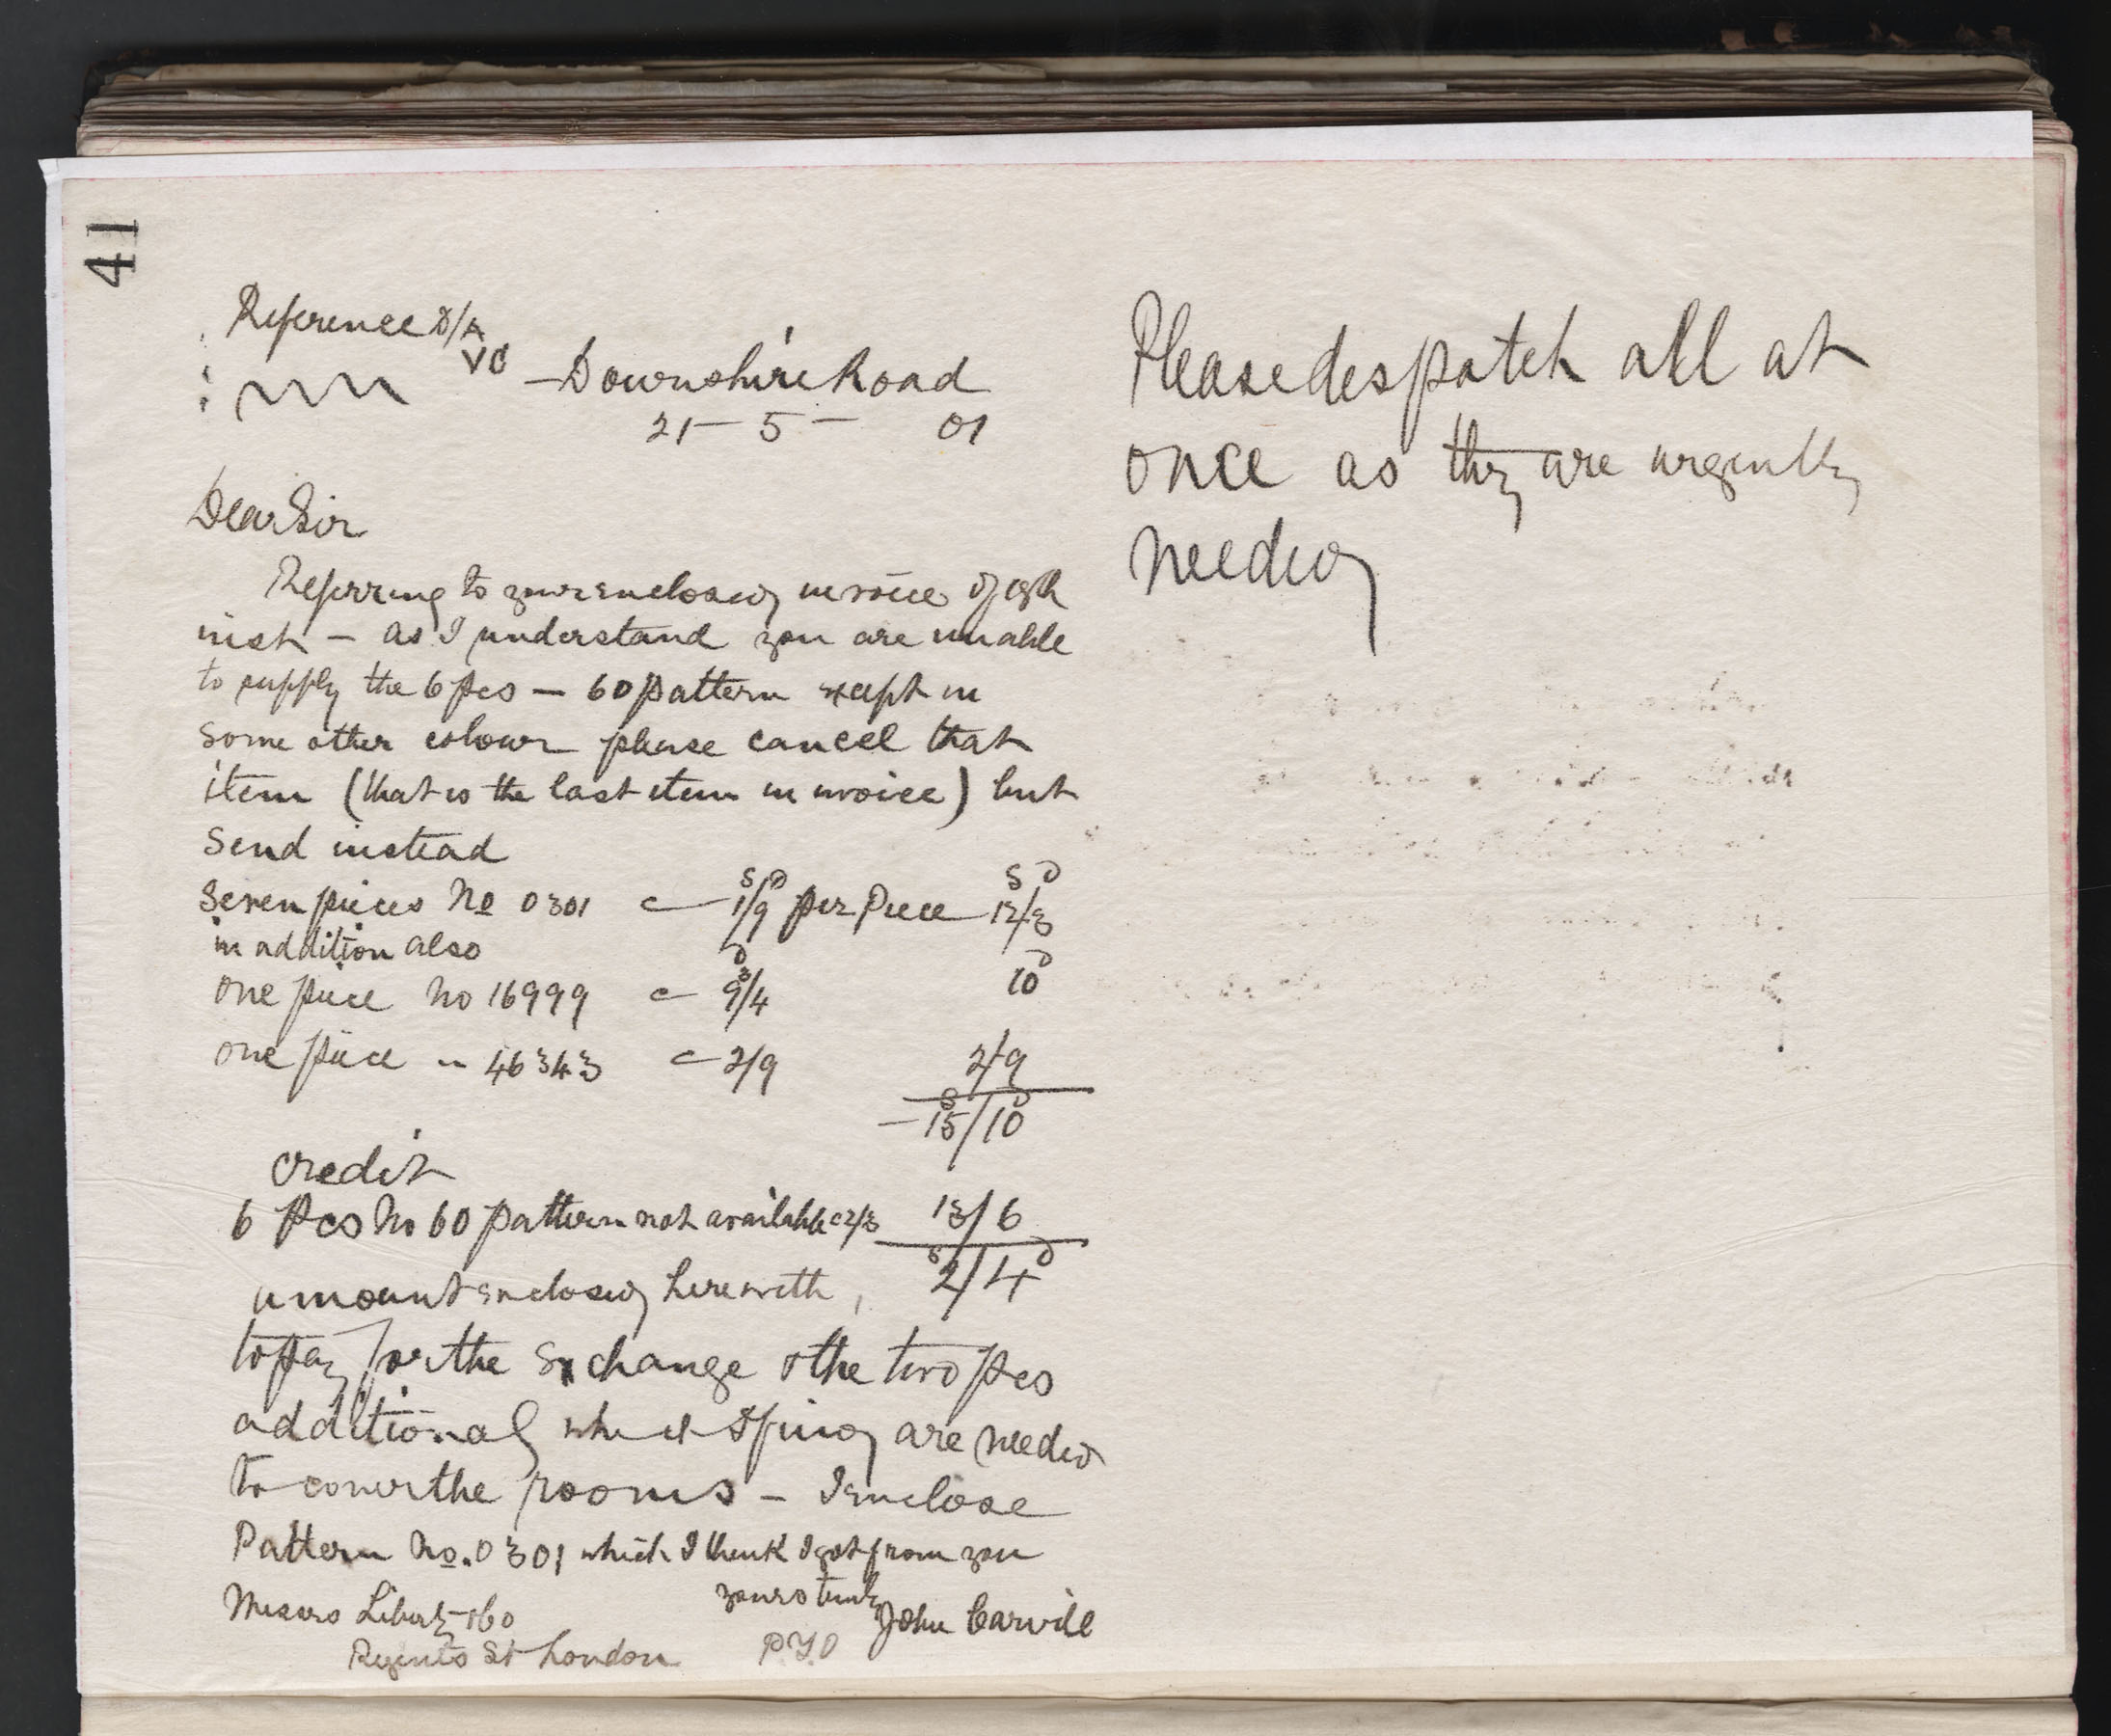 41
Reference 8/A
VC
Downshire Road
21 - 5 - 01
Dear Sir
Referring to your enclosed invoice of
inst - as I understand you are unable
to supply the 6 pcs - 60 pattern except in
some other colour please cancel that
item (that is the last item in invoice) but
send instead
S D S D
Seven pieces No 0301 @ 1/9 per Piece 12/3
in addition also
one piece No 16999 @ 10 D
one piece " 46343 @ 2/9 2/9
S D
15/10
credit
6 Pcs No 60 pattern not available @ 2/3 13/6
S D
amount enclosed herewith, 2/4
to pay for the exchange & the two pcs
additional which I find are needed
to cover the rooms - I enclose
Pattern No. 0301 which I think I got from you
yours truly
Messrs Liberty &Co John Carvill
Regents St London P.T.O
Please despatch all at
once as they are urgently
needed